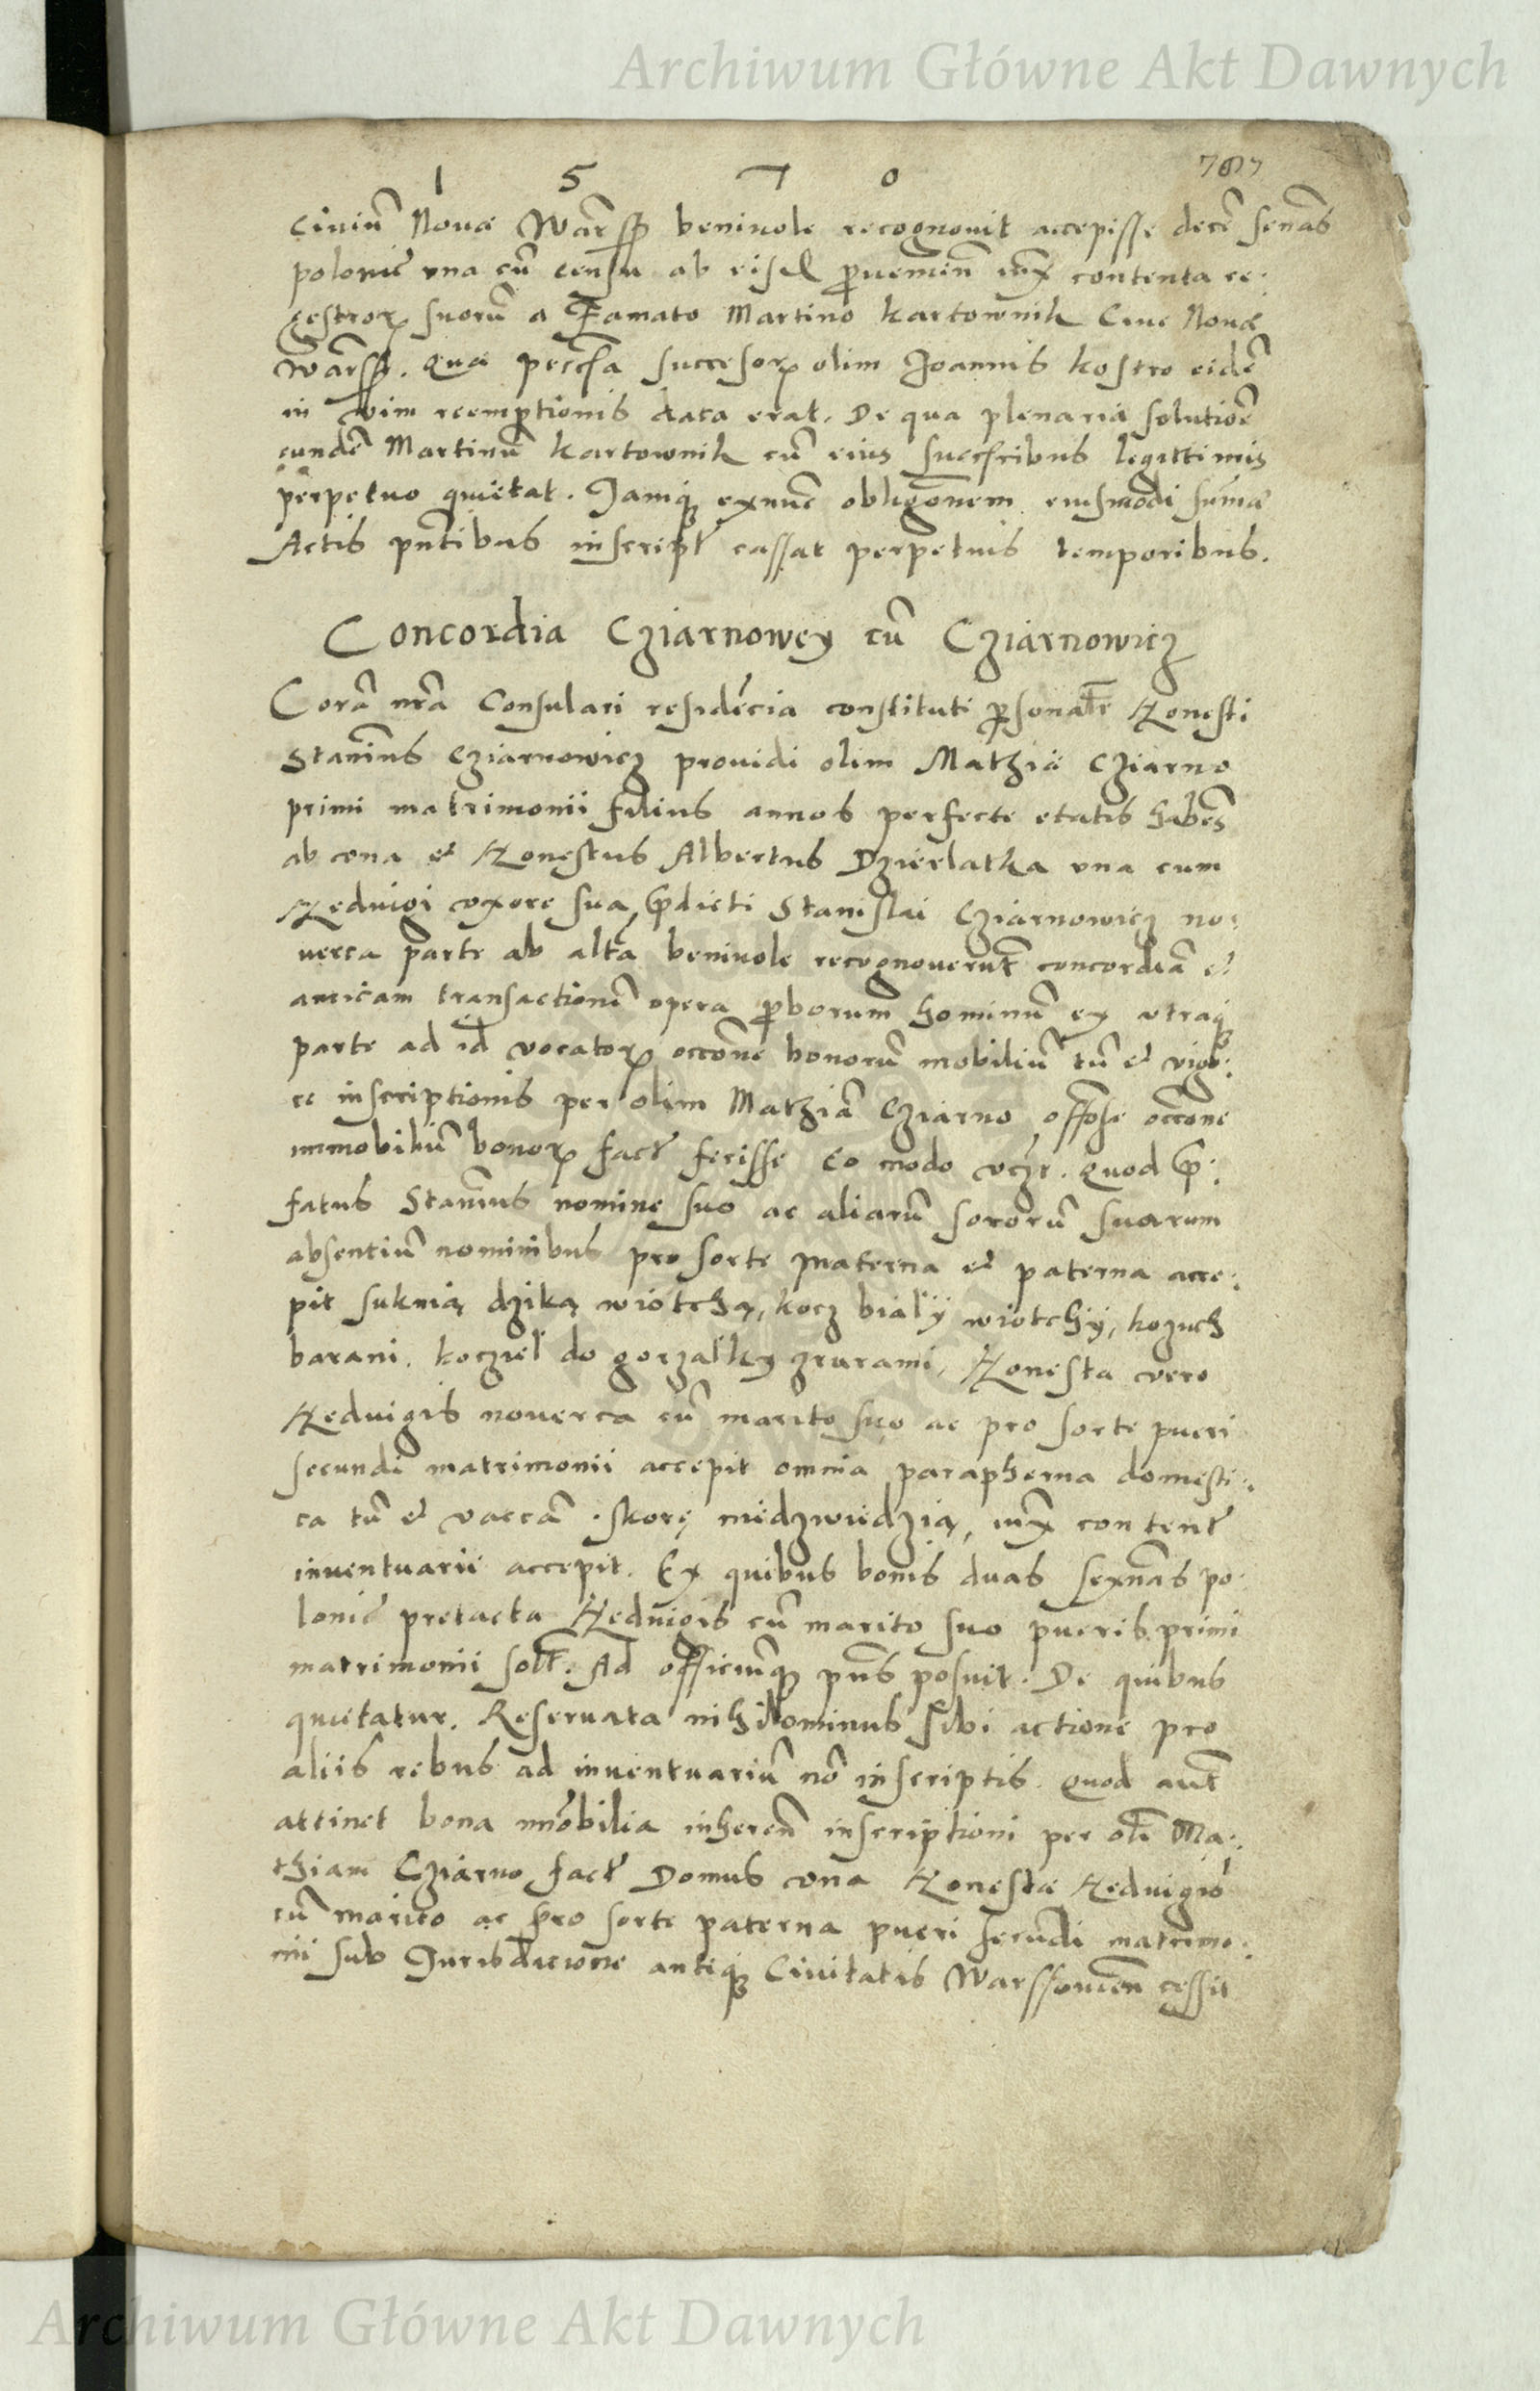 Archiwum Główne Akt Dawnych
1 5 7 0
Ciuiũ Nouæ Warss beniuole recognouit accepisse decẽ senãs
polonic̃ vna cũ censu ab eisd ꝓuenien̄ iux̃ contenta re:
gestroꝝ suorũ a Famato Martino kartownik Ciue Nouæ
Warss. Quæ pecc̃sa succesoꝝ olim Joannis kostro eidẽ
in vim reemptionis data erat. De qua plenaria solutiõe
eundẽ Martinũ kartownik cũ eius succ̃scribus legittimis
perpetuo quietat. Jamqꝫ exnũc obligõnem eiusmodi sum̃æ
Actis pñtibus inscript̃ cassat perpetuis temporibus.
Concordia Cziarnowey cũ Cziarnowicz
Corã nr̃a Consulari residẽcia constituti ꝑsonalr̃ Honesti
Stanĩus Cziarnowicz prouidi olim Mathiæ Cziarno
primi matrimonii filius annos perfecte etatis habẽs
ab vna et Honestus Albertus Dzierlatka vna cum
Heduigi vxore sua, p̃dicti Stanislai Cziarnowicz no:
uerca parte ab altã beniuole recognouerũt concordiã et
amicam transactionẽ opera ꝓborum hominũ ex vtraqꝫ
parte ad id vocatoꝝ occõne bonorũ mobiliũ tũ et vigo:
re inscriptionis per olim Mathiã Cziarno occõne
immobiliũ bonoꝝ fact̃ fecisse Eo modo vczt. Quod p̃:
fatus Stanĩus nomine suo ac aliarũ sororũ suarum
absentiũ nominibus pro sorte materna et paterna acce:
pit suknią dziką wiotchą, kocz białÿ wiotchÿ, kozuch
barani, kocziel do gorzałky zrurami, Honesta vero
Heduigis nouerca cũ marito suo ac pro sorte pueri
secundi matrimonii accepit omnia parapherna domesti:
ca tũ et vaccã. skorę niedzwiedzią, iux̃ content̃
inuentuarii accepit. Ex quibus bonis duas sexnãs po:
lonic̃ pretacta Heduigis cũ marito suo pueris primi
matrimonii solt̃. Ad officiũqꝫ pñs posuit. De quibus
quietatur. Reseruata nihilominus sibi actione pro
aliis rebus ad inuentuariũ nõ inscriptis. Quod aut̃
attinet bona im̃obilia inheren̄ inscriptioni per olĩ Ma:
thiam Cziarno fact̃ Domus vna Honestæ Heduigis
cũ marito ac pro sorte paterna pueri secũdi matrimo:
nii sub Jurisdicione antiquꝫ Ciuitatis Warssouien̄ cessit
Archiwum Główne Akt Dawnych